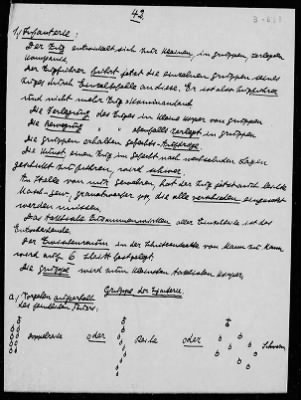 42
1.) Infanterie:
Der Zug entwickelt sich zur kleinen, in gruppen, zerlegten
Kompanie.
Der Zugführer führt jetzt die einzelnen gruppen seines
Zuges durch Einzelbefehle an diese. Er ist also Zugführer
und nicht mehr Zugskommandant
Die Zerlegung des Zuges im kleine Körper von gruppen
Die Bewegung " " ebenfalls zerlegt in gruppen
Die gruppen erhalten gefechts-Aufträge.
Die Kunst einen Zug im gefecht nach wechselnden Lagen
geschickt zu führen, wird schwer.
An Stelle von nur gewehren, hat der Zug jetzt auch leichte
Masch.-gew., granatwerfer etc, die alle verschieden eingesetzt
werden müssen.
Das taktvolle Zusammenwirken aller Einzelteile ist das
Entscheidende.
Der Zwischenraum in der Schützenkette von Mann zu Mann
wird auf 6 Schritt festgelegt.
Die gruppe wird zum kleinsten taktischen Körper.
Gruppe der Infanterie.
a.) Vorgehen ausserhalb
des feindlichen Feuers:
Doppelreihe oder Reihe oder Schwarm